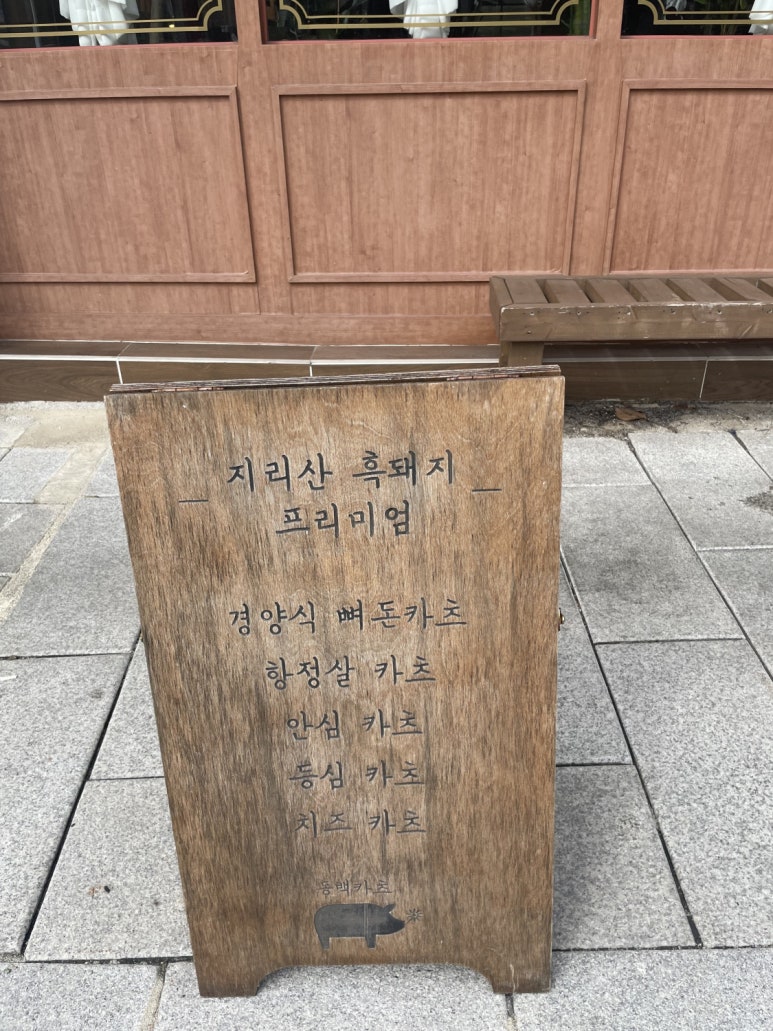 지리산 흑돼지
프리미엄
경양식 뼈돈카츠
항정살 카츠
안심 카츠
등심 카츠
치즈 카츠
동백카츠